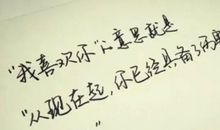 "我喜欢你"的意思就是
"从现在起，你已经具备了伤害
"